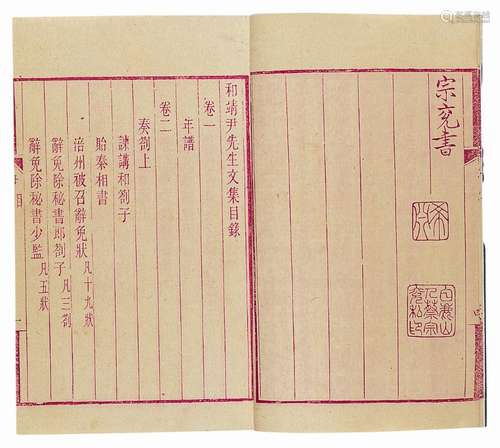 宗兗書
和靖尹先生文集目錄
卷一
年譜
卷二
奏劄上
諫講和劄子
貽秦相書
涪州被召辭免狀凡十九狀
辭免除秘書郎劄子凡三劄
辭免除秘書少監凡五狀